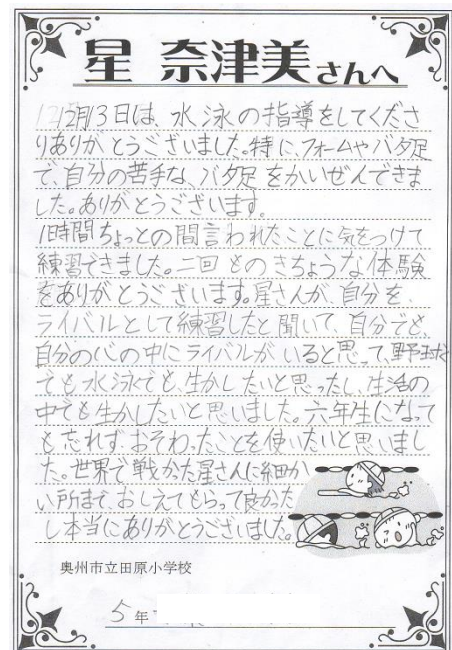 星 奈津美さんへ
12月13日は、水泳の指導をしてくださ
りありがとうございました。特に、フォームやバタ足
で、自分の苦手な、バタ足をかいぜんできま
した。ありがとうございます。
1時間ちょっとの間言われたことに気をつけて
練習できました。二回ものきちょうな体験
をありがとうございます。星さんが、自分を、
ライバルとして練習したと聞いて、自分でも、
自分の心の中にライバルがいると思って、野球
でも水泳でも、生かしたいと思ったし、生活の
中でも生かしたいと思いました。六年生になって
も忘れず、おそわったことを使いたいと思いまし
た。世界で戦かった星さんに細か
い所まで、おしえてもらって良かった
し本当にありがとうございました。
奥州市立田原小学校
5年